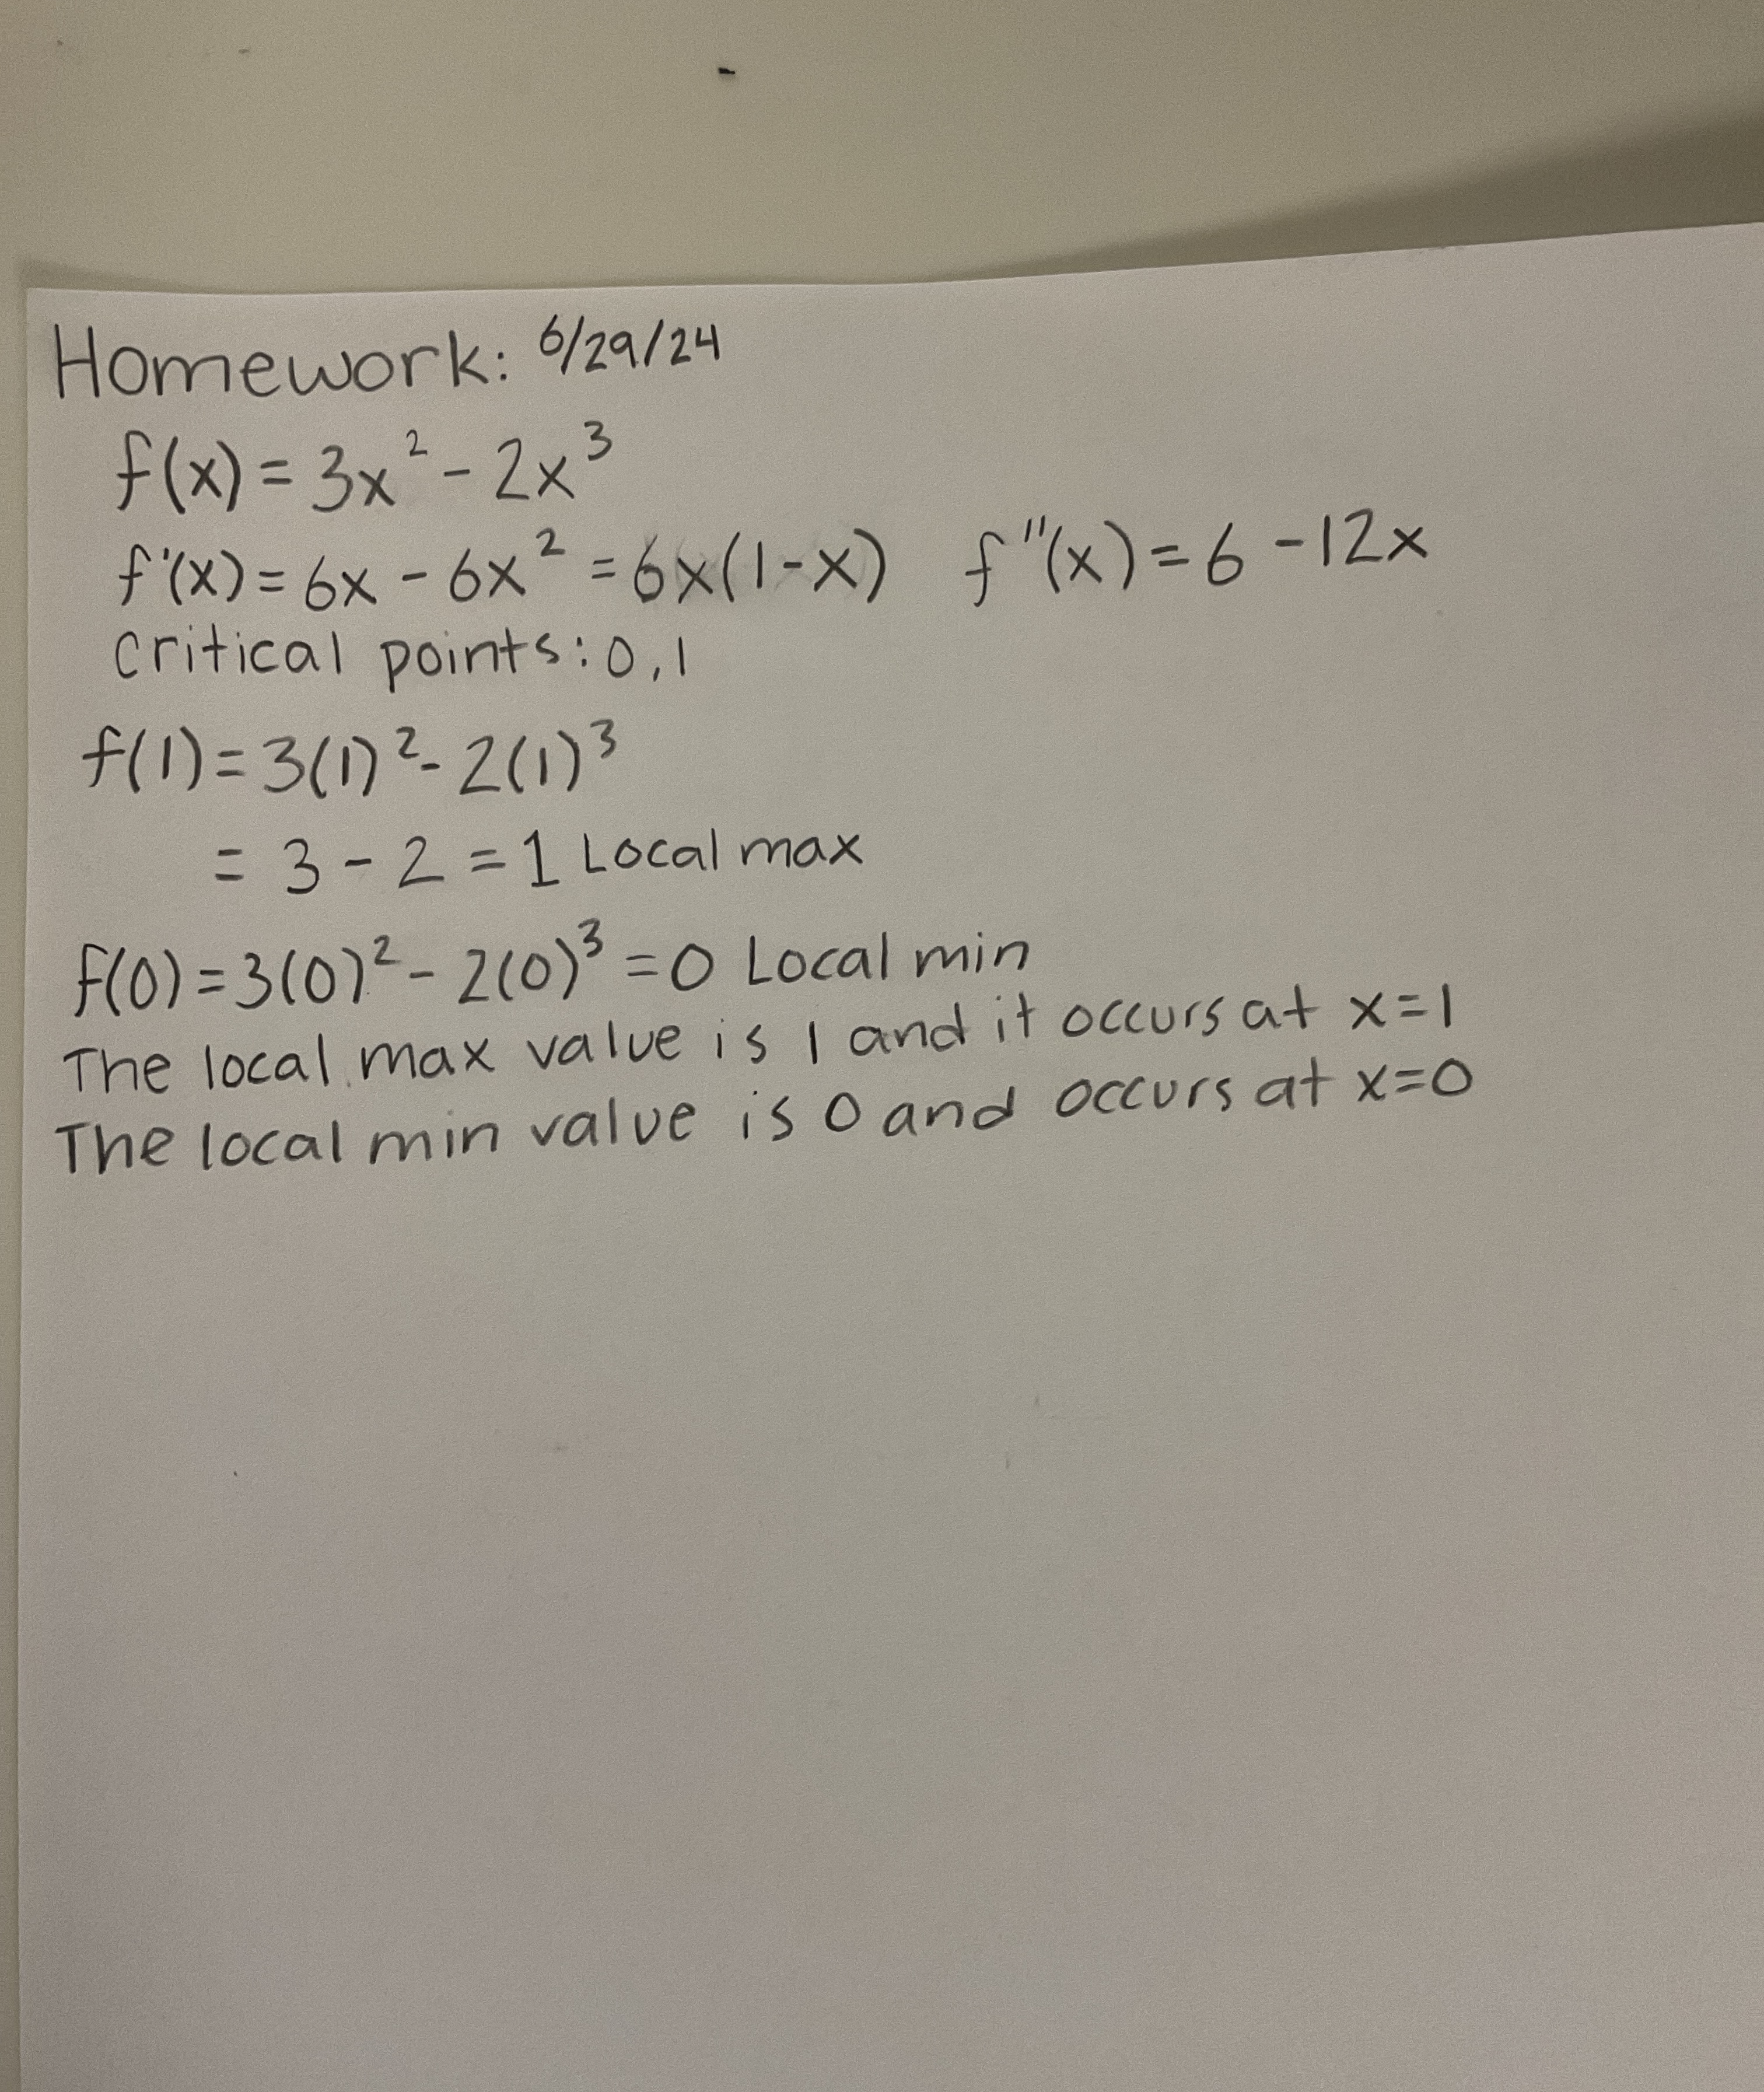 Homework: 6/29/24
f(x) = 3x² - 2x³
f'(x) = 6x - 6x² = 6x(1-x) f"(x) = 6 - 12x
critical points: 0, 1
f(1) = 3(1)² - 2(1)³
= 3 - 2 = 1 Local max
f(0) = 3(0)² - 2(0)³ = 0 Local min
The local max value is 1 and it occurs at x=1
The local min value is 0 and occurs at x=0